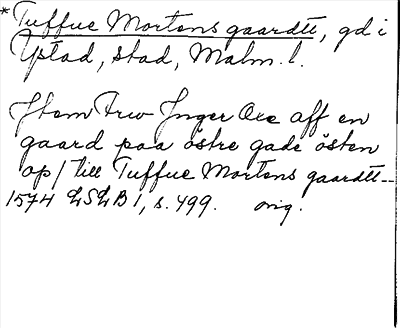 *Tuffue Mortens gaardtt, gd i
Ystad, stad, Malm. l.
Jtem Frw Jnger Oxe aff en
gaard paa östre gade östen
op / till Tuffue Mortens gaardtt --
1574 LSLB 1, s. 499. orig.